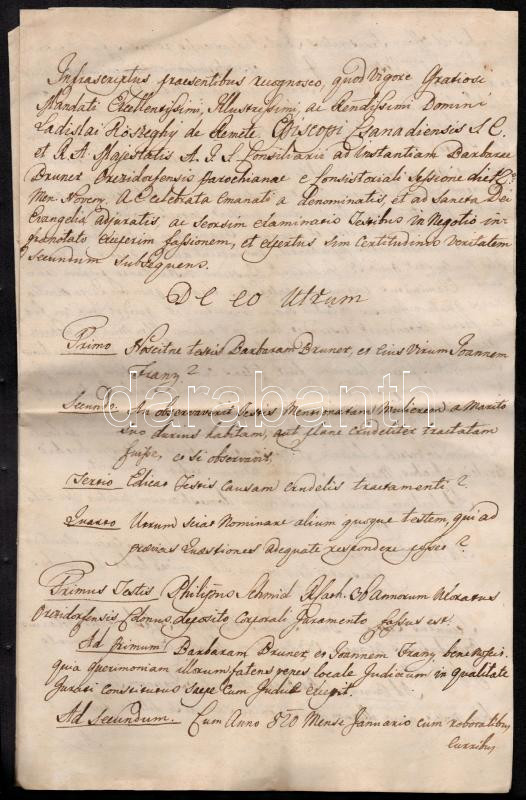 Infrascriptus praesentibus recognosco, quod Vigore Gratiosi
Mandati Excellentissimi, Illustrissimi, ac Rendissimi Domini
Ladislai Kőszeghy de Remete Episcopi Csanadiensis S. C.
et R. A. Majestatis A. I. S. Consiliarii ad Instantiam Barbarae
Bruner Orczidorfensis Parochianae e Consistoriali Sessione
Men. Novem. A. C. celebrata emanati a denominatis, et ad Sancta Dei
Evangelia adjuratis, ac seorsim examinatis Testibus in Negotio in-
franotato exceperim fassionem, et expertus sim Certitudinis Veritatem
secundum subsequens.
De eo Utrum
Primo Noscitne testis Barbaram Bruner, et Ejus Virum Joannem
Franz?
Secundo. An observaverit Testis Mentionatam Mulierem a Marito
suo durius habitam, aut plane crudeliter tractatam
fuisse, et si observavit,
Tertio Edicat Testis causam crudelis tractamenti?
Quarto Utrum sciat Nominare alium quoque testem, qui ad
praevias Quaestiones adequate respondere posset?
Primus Testis Philippus Schmid 36 Annorum Uxoratus
Orczidorfensis Colonus, deposito Corporali Juramento fassus est.
Ad Primum Barbaram Bruner, et Joannem Franz bene
quia Querimoniam illorum fatens penes locale Judicium in qualitate
Jurati constitutus saepe cum Judice excepit.
Ad Secundum. Cum Anno 820 Mense Januario cum roboratibus
curribus
darabanth